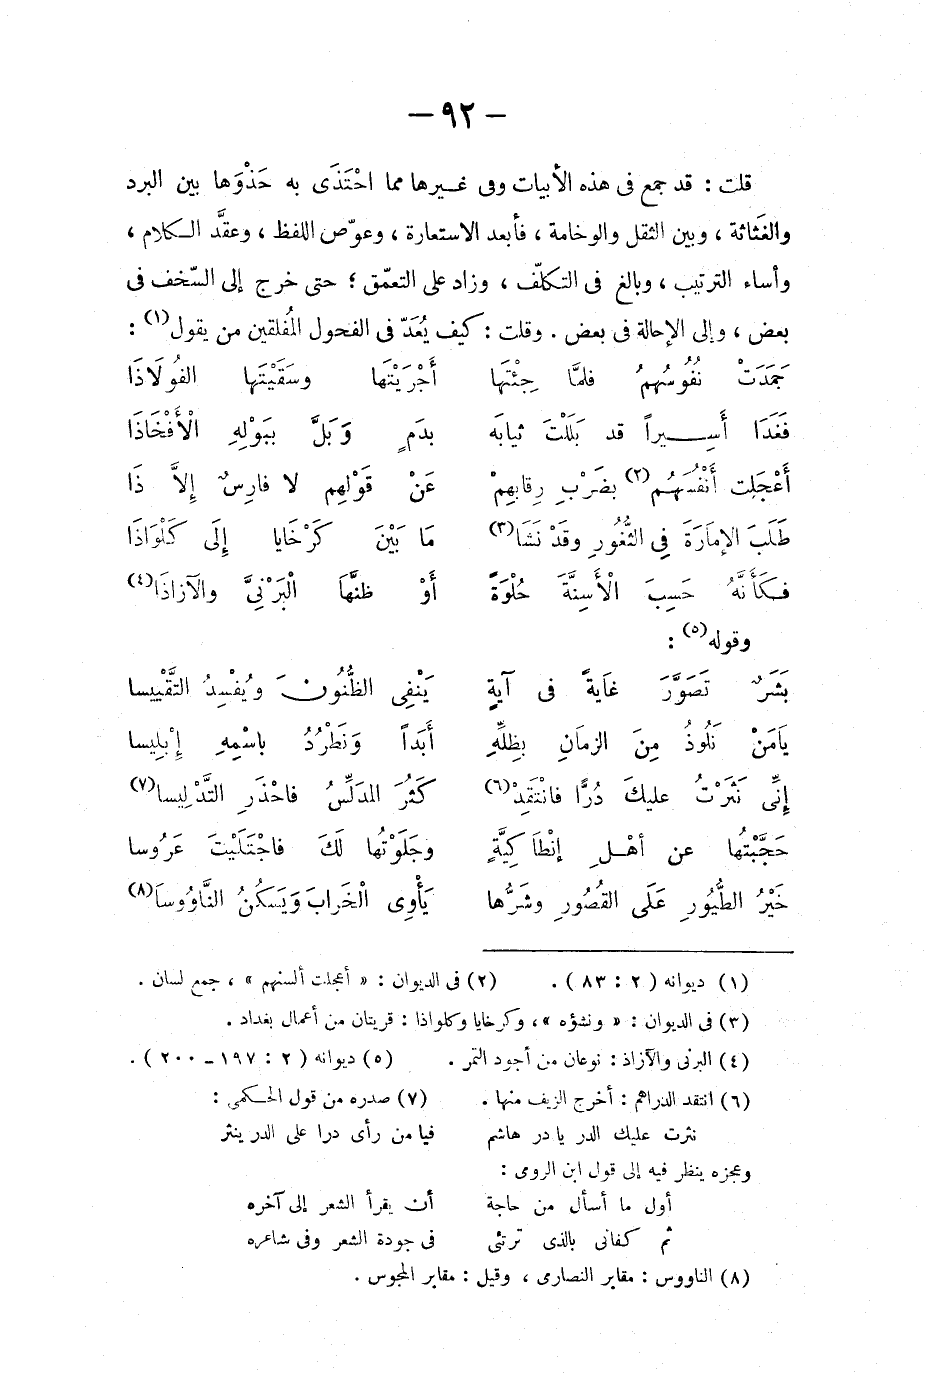 — ٩٢ —
قلت : قد جمع فى هذه الأبيات وفى غيرها مما احْتَذَى به حَذْوَها بين البرد
والغَثاثة ، وبين الثقل والوخامة ، فأبعد الاستعارة ، وعوّص اللفظ ، وعقَّد الكلام ،
وأساء الترتيب ، وبالغ فى التكلّف ، وزاد على التعمّق ؛ حتى خرج إلى السّخف فى
بعض ، وإلى الإحالة فى بعض . وقلت : كيف يُعَدّ فى الفحول المُفلقين من يقول(١) :
جَمَدَتْ نُفُوسُهمُ فلمَّا جِئْتَها أجْرَيْتَها وسَقَيْتَها الفُولَاذَا
فَغَدَا أَسِيراً قد بَلَلْتَ ثيابَه بدَمٍ وَبَلَّ ببَوْلِهِ الْأَفْخَاذَا
أَعْجَلت أَنْفُسَهُم(٢) بضَرْبِ رِقابِهمْ عَنْ قَوْلِهِم لا فارِسٌ إِلاَّ ذَا
طَلَبَ الإمَارَةَ فِى الثُّغُورِ وقَدْ نَشَا(٣) مَا بَيْنَ كَرْخَايا إِلَى كَلْوَاذَا
فكَأنَّهُ حَسِبَ الْأَسِنَّةَ حُلْوَةً أوْ ظنَّها الْبَرْنِىَّ والآزاذَا(٤)
وقوله(٥) :
بَشَرٌ تَصَوَّرَ غايَةً فى آيَةٍ يَنْفِى الظُّنُونَ ويُفْسِدُ التَّقْييسا
يَامَنْ نَلُوذُ مِنَ الزمانِ بِظِلِّهِ أبَداً ونَطْرُدُ باسْمِهِ إبْلِيسا
إنِّى نَثَرْتُ عليكَ دُرًّا فانْتَقِدْ(٦) كَثُرَ المدَلِّسُ فاحْذَرِ التَّدْلِيسا(٧)
حَجَّبْتُها عن أهْلِ إنْطَاكِيَّةٍ وجَلَوْتُها لَكَ فاجْتَلَيْتَ عَرُوسا
خَيْرُ الطُّيُورِ عَلَى القُصُورِ وشَرُّها يَأْوِى الْخَرابَ وَيَسكُنُ النَّاوُوسَا(٨)
(١) ديوانه ( ٢ : ٨٣ ) . (٢) فى الديوان : « أعجلت ألسنهم » ، جمع لسان .
(٣) فى الديوان : « ونشؤه » ، وكرخايا وكلواذا : قريتان من أعمال بغداد .
(٤) البرنى والآزاذ : نوعان من أجود التمر . (٥) ديوانه ( ٢ : ١٩٧ ـ ٢٠٠ ) .
(٦) انتقد الدراهم : أخرج الزيف منها . (٧) صدره من قول الحكمى :
نثرت عليك الدر يا در هاشم فيا من رأى درا على الدر ينثر
وعجزه ينظر فيه إلى قول ابن الرومى :
أول ما أسأل من حاجة أن يقرأ الشعر إلى آخره
ثم كفانى بالذى ترتئى فى جودة الشعر وفى شاعره
(٨) الناووس : مقابر النصارى ، وقيل : مقابر المجوس .